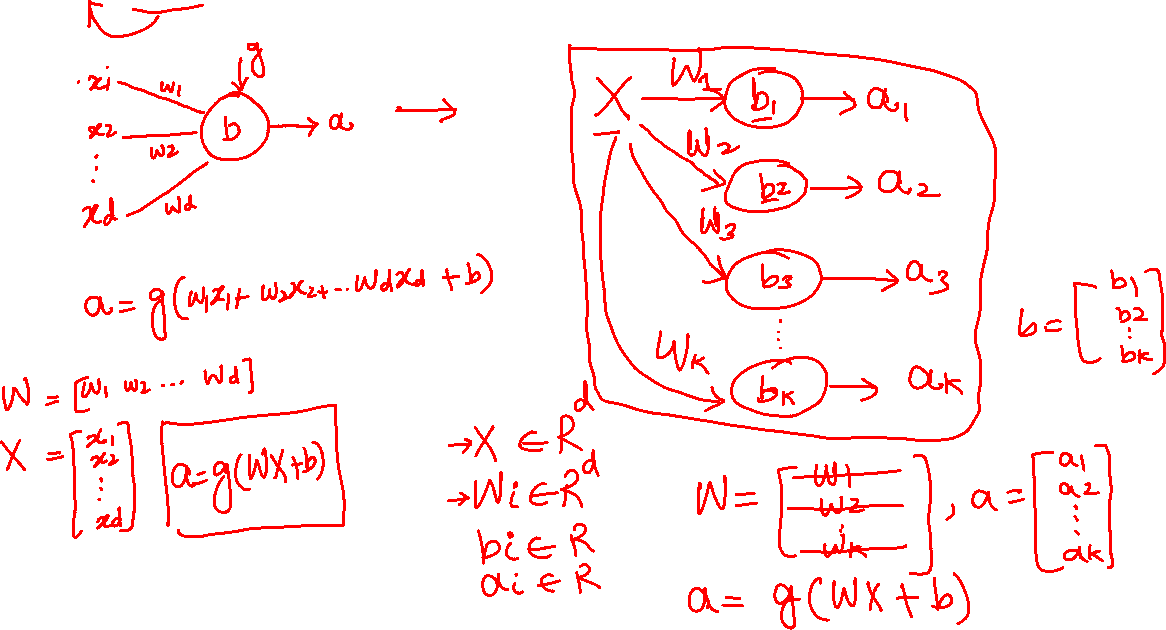 g
xi
w1
x2
w2
⋮
xd
wd
b
a
a = g(w1x1+ w2x2+ ... wdxd + b)
W = [w1 w2 ... wd]
X = [x1 x2 ⋮ xd]
a=g(WX+b)
X
W1
b1
a1
W2
b2
a2
W3
b3
a3
⋮
WK
bK
aK
b = [b1 b2 ⋮ bK]
→X ∈ R^d
→Wi ∈ R^d
bi ∈ R
ai ∈ R
W = [W1 W2 ⋮ WK], a = [a1 a2 ⋮ aK]
a = g(WX + b)